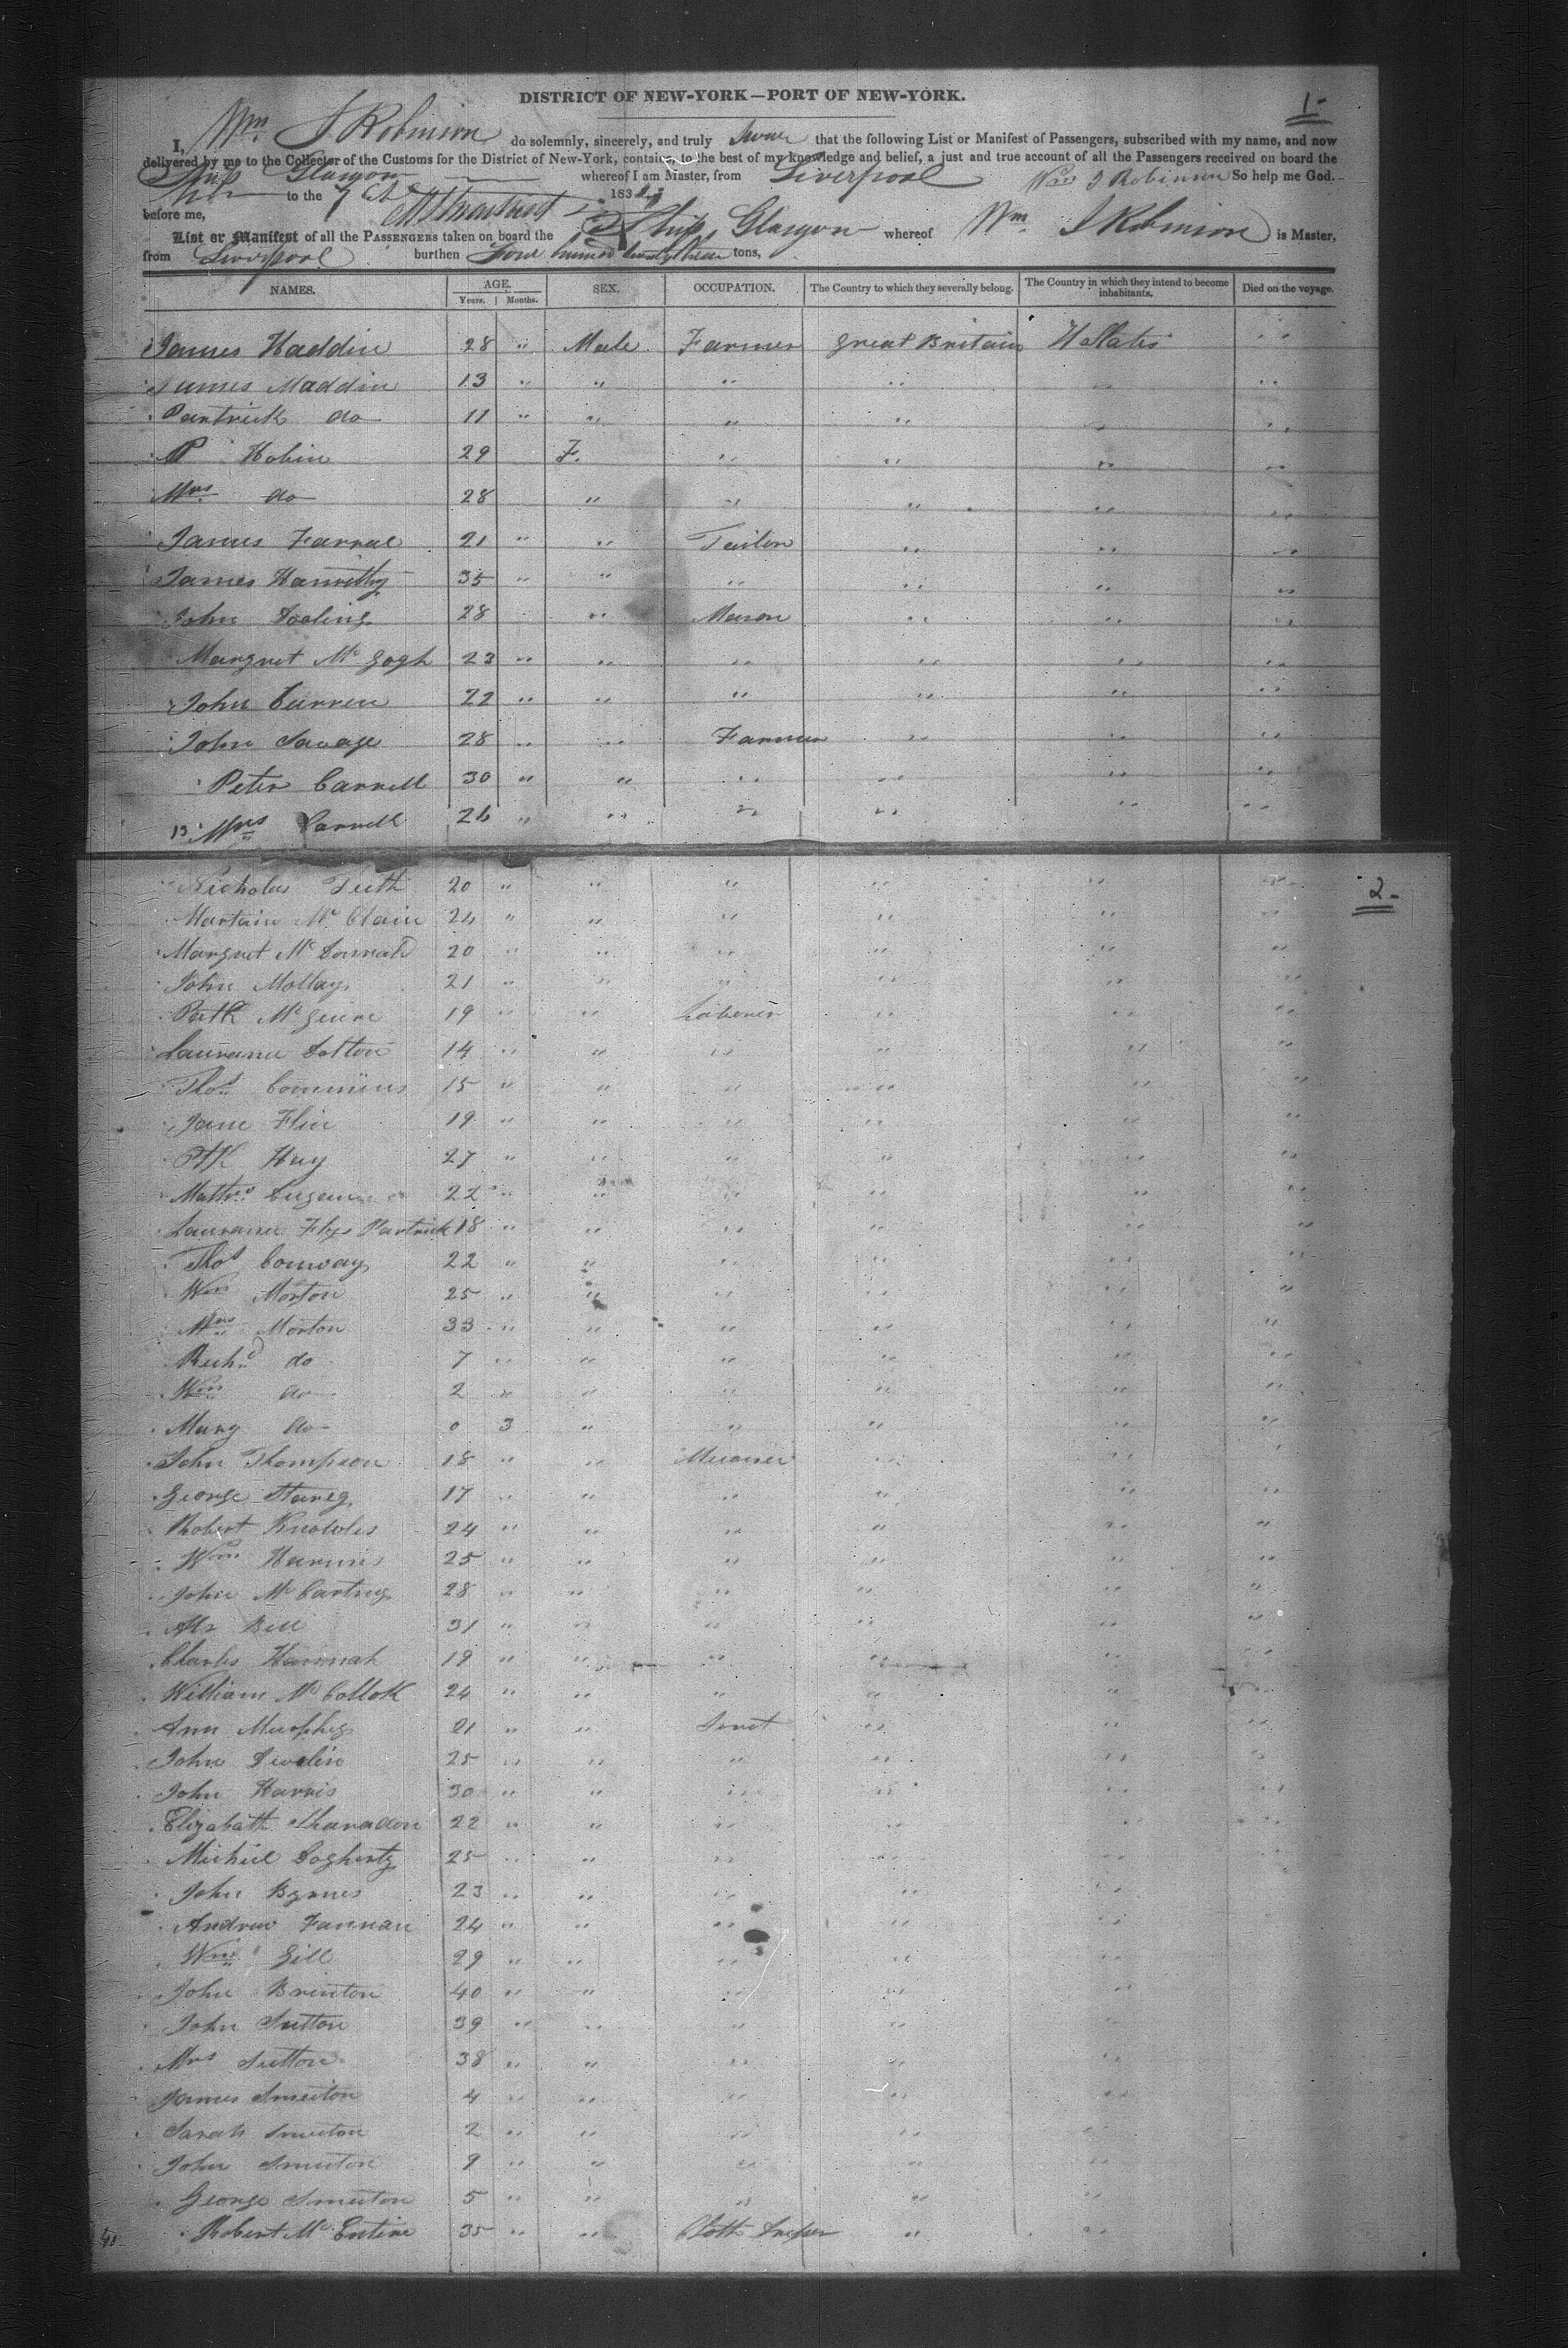 DISTRICT OF NEW-YORK—PORT OF NEW-YORK.
1-
I, Wm J Robinson do solemnly, sincerely, and truly swear that the following List or Manifest of Passengers, subscribed with my name, and now
delivered by me to the Collector of the Customs for the District of New-York, contains, to the best of my knowledge and belief, a just and true account of all the Passengers received on board the
Ship Glasgow whereof I am Master, from Liverpool Wm J Robinson So help me God.
to the 183
before me,
List or Manifest of all the PASSENGERS taken on board the Ship Glasgow whereof Wm J Robinson is Master,
from Liverpool burthen Four tons,
NAMES. AGE. SEX. OCCUPATION. The Country to which they severally belong. The Country in which they intend to become inhabitants. Died on the voyage.
Years. Months.
James Haddin 28 " Male Farmer Great Britain U States " "
James Maddin 13 " " " " " "
Partrick do 11 " " " " " "
P Hobin 29 F. " " " "
Mrs do 28 " " " " "
James Farral 21 " " Tailor " " "
James 35 " " " " " "
John Dooling 28 " Mason " " "
Margret Mc Gogh 23 " " " " " "
John Curren 22 " " " " " "
John Savage 28 " " Farmer " " "
Peter Carrell 30 " " " " " "
13 Mrs Carrell 26 " " " " " "
2-
Nicholus Tuth 20 " " " " " "
Martain Mc Clain 24 " " " " " "
Margret Mc 20 " " " " " "
John Mollay 21 " " " " " "
Patk McGuire 19 " " Laberer " " "
Laurance Dolton 14 " " " " " "
Thos Commins 15 " " " " " "
Jane Flin 19 " " " " " "
Ptk Hay 27 " " " " " "
Mathw 22 " " " " " "
Laurance Fitz Partrick 18 " " " " " "
Thos Conway 22 " " " " " "
Wm Morton 25 " " " " " "
Mrs Morton 33 " " " " " "
Richd do 7 " " " " " "
Wm do 2 " " " " " "
Mary do 0 3 " " " " "
John Thompson 18 " " " " "
George 17 " " " " " "
Robert Knowles 24 " " " " " "
Wm 25 " " " " " "
John McCartney 28 " " " " " "
Alx Bell 31 " " " " " "
Charles Hannah 19 " " " " " "
William McCollok 24 " " " " " "
Ann Murphey 21 " " Servt " " "
John Develin 25 " " " " " "
John Harris 30 " " " " " "
Elizabath Sharadon 22 " " " " " "
Michiel Dogherty 25 " " " " " "
John Byrnes 23 " " " " "
Andrew Fannan 24 " " " " "
Wm Gill 29 " " " " "
John Brinton 40 " " " " "
John Sutton 39 " " " " "
Mrs Sutton 38 " " " " "
James Smeeton 4 " " " " "
Sarah Smeeton 2 " " " " "
John Smeeton 9 " " " " "
George Smeeton 5 " " " " "
Robert Mc Entire 35 " " Cloth " "